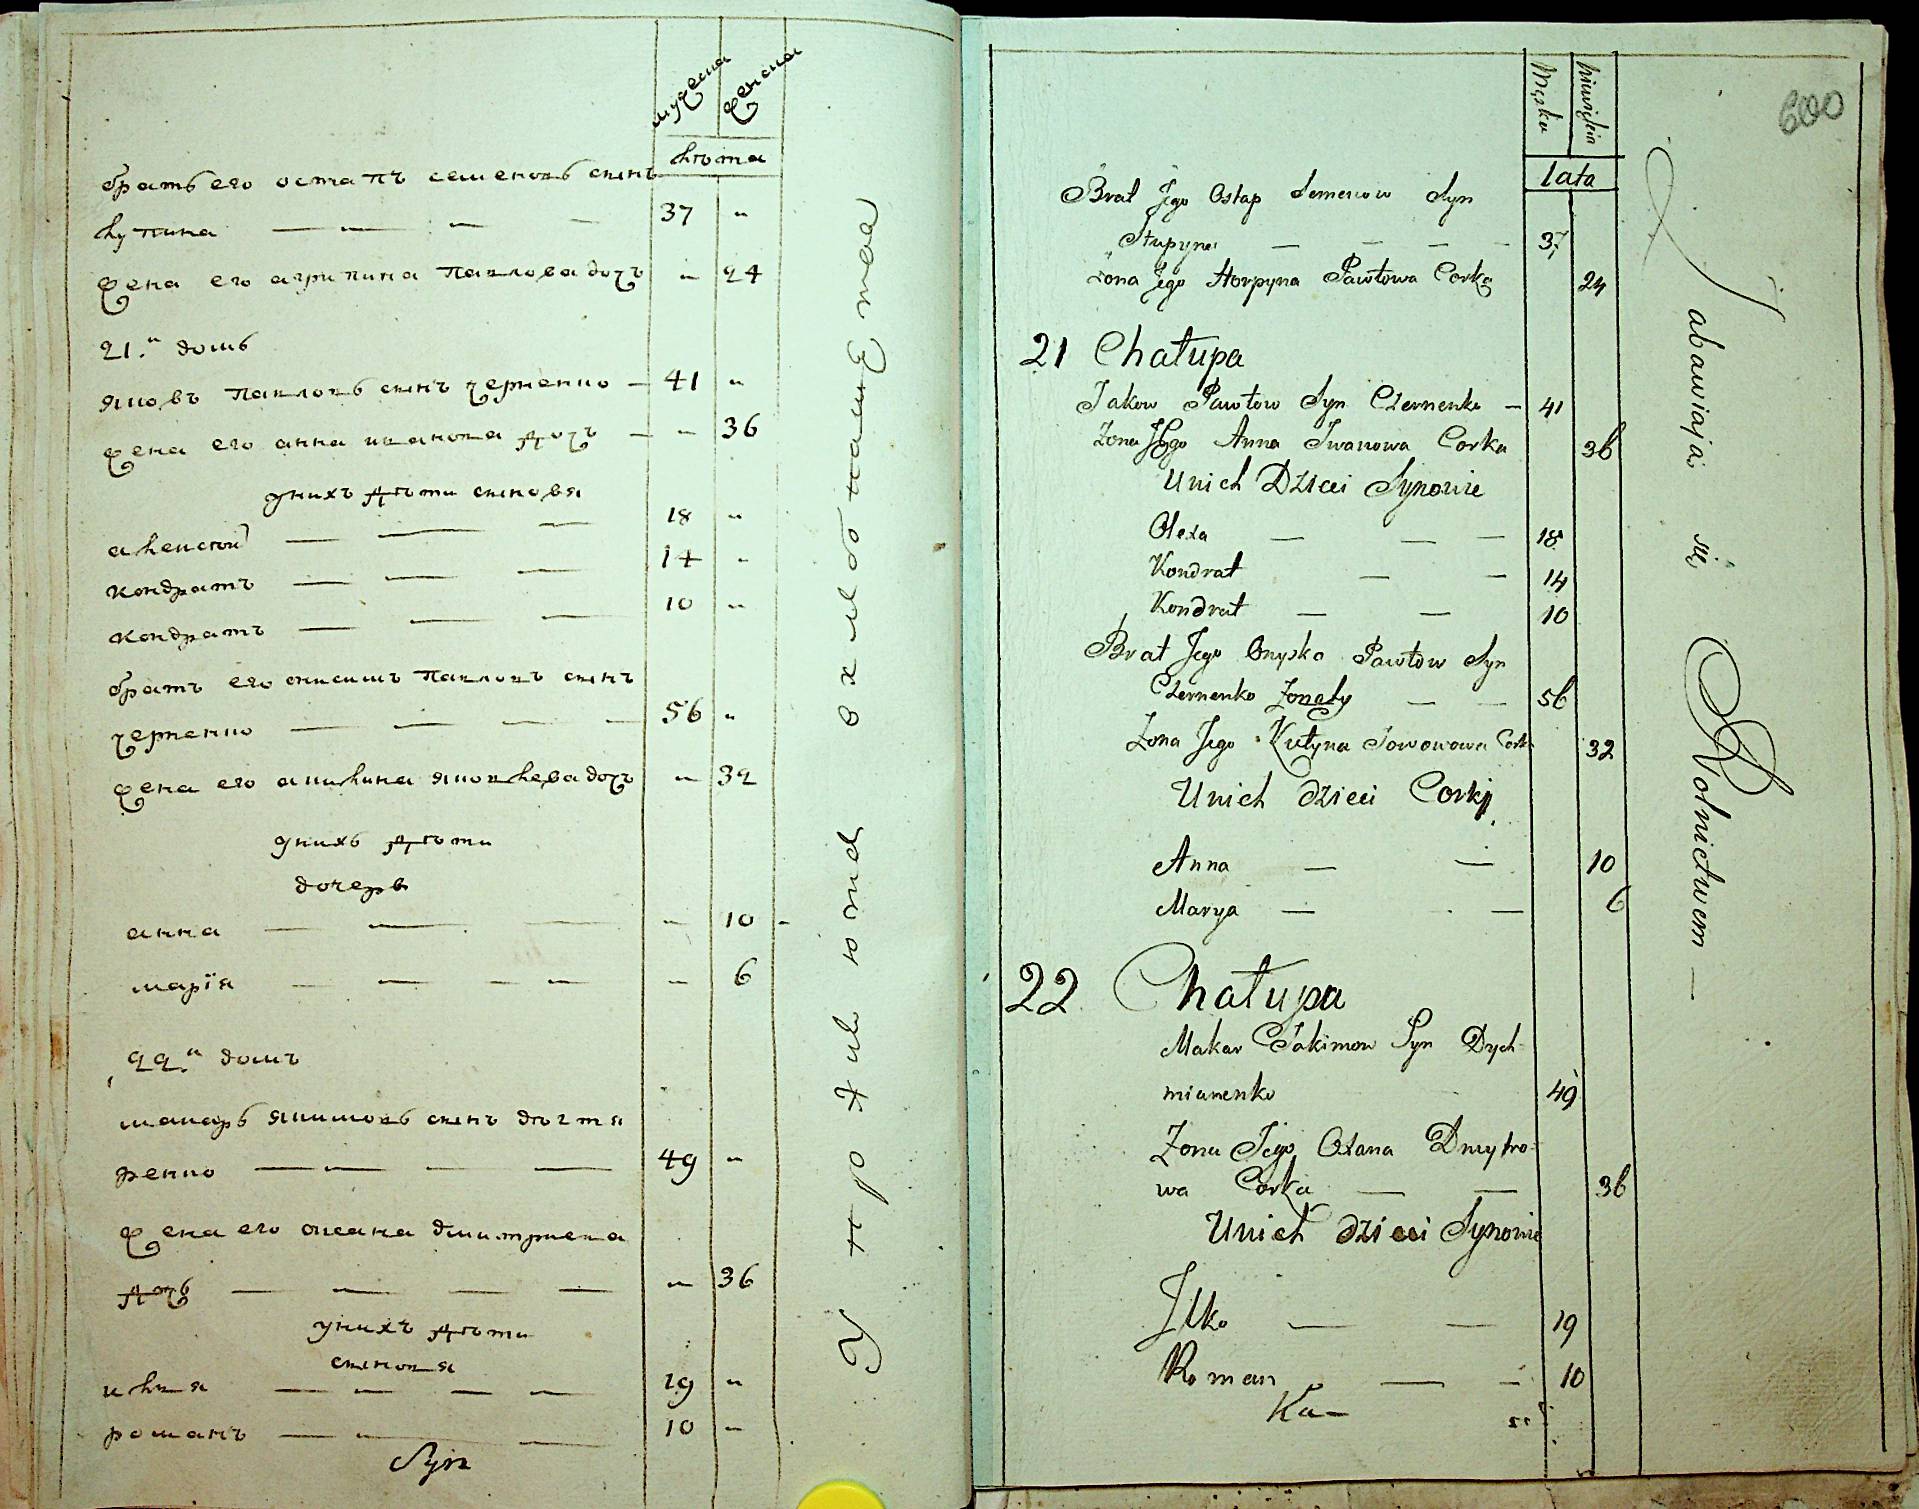 мужеска
женска
лѣта
братъ его остапъ семеновъ сынъ
лупина — — — — 37 „
жена его агрипина павлова дочъ „ 24
21.й домъ
яковъ павловъ сынъ черненко — 41 „
жена его анна иванова дочъ — „ 36
у нихъ дѣти сыновья
алексѣй — — — 18 „
кондратъ — — — 14 „
кондратъ — — — 10 „
братъ его онисимъ павловъ сынъ
черненко — — — — 56 „
жена его акилина яковлева дочъ „ 32
у нихъ дѣти
дочеръ
анна — — — „ 10 -
марія — — — — „ 6
22.й домъ
макаръ якимовъ сынъ дѣгтя
ренко — — — — 49 „
жена его оксана дмитриева
дочъ — — — — „ 36
у нихъ дѣти
сыновья
илья — — — — 19 „
романъ — — — 10 „
Syn
Упражняются в хлебопашества
600
Męska
Lata
Brat Jego Ostap Semenow Syn
Łupyna — — — — 37
Żona Jego Horpyna Pawłowa Corka 24
21 Chałupa
Jakow Pawłow Syn Czernenko — 41
Żona Jego Anna Iwanowa Corka 36
U nich Dzieci Synowie
Olexa — — — 18
Kondrat — — 14
Kondrat — — 10
Brat Jego Onysko Pawłow Syn
Czernenko Żonaty — — 56
Żona Jego Kulyna Jowowowa Cork 32
U nich dzieci Corki
Anna — — 10
Marya — — 6
22 Chałupa
Makar Jakimow Syn Dych-
mianenko 49
Żona Jego Oxana Dmytro-
wa Corka — — 36
U nich dzieci Synowie
Ilko — — 19
Roman — — 10
Ka—
Zabawiają się Rolnictwem —